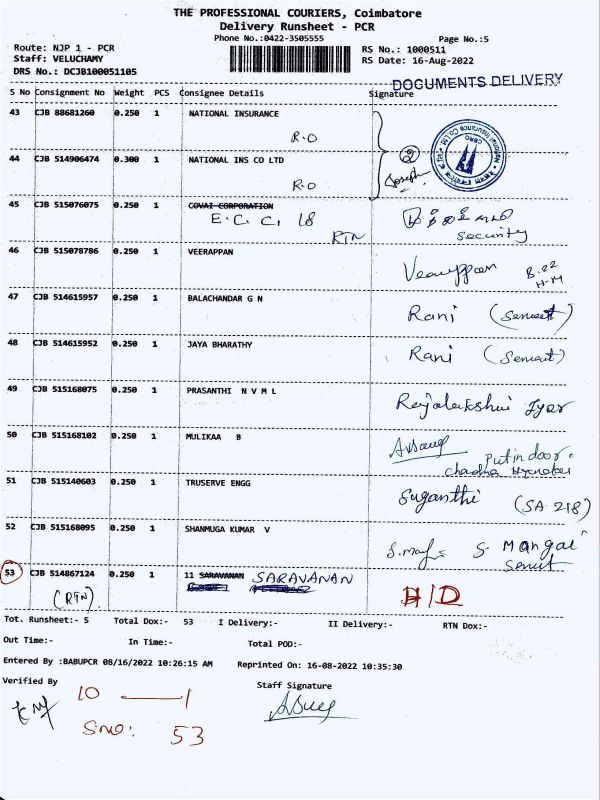 THE PROFESSIONAL COURIERS, Coimbatore
Delivery Runsheet - PCR
Phone No.:0422-3505555
Page No.:5
Route: NJP 1 - PCR
RS No.: 1000511
Staff: VELUCHAMY
RS Date: 16-Aug-2022
DRS No.: DCJB100051105
DOCUMENTS DELIVERY
S No Consignment No Weight PCS Consignee Details Signature
43 CJB 88681260 0.250 1 NATIONAL INSURANCE
R.O
2
Joseph
44 CJB 514906474 0.300 1 NATIONAL INS CO LTD
R.O
45 CJB 515076075 0.250 1 COVAI CORPORATION
E.C.C. 18
RTN
Security
46 CJB 515078786 0.250 1 VEERAPPAN
Veerappan B.22
H-M
47 CJB 514615957 0.250 1 BALACHANDAR G N
Rani
48 CJB 514615952 0.250 1 JAYA BHARATHY
Rani
49 CJB 515168075 0.250 1 PRASANTHI N V M L
Rajalakshmi Iyer
50 CJB 515168102 0.250 1 MULIKAA B
Put in door.
51 CJB 515140603 0.250 1 TRUSERVE ENGG
Suganthi (SA 218)
52 CJB 515168095 0.250 1 SHANMUGA KUMAR V
S. Mangai
53 CJB 514867124 0.250 1 11 SARAVANAN SARAVANAN
(RTN)
H/D
Tot. Runsheet:- 5 Total Dox:- 53 I Delivery:- II Delivery:- RTN Dox:-
Out Time:- In Time:- Total POD:-
Entered By :BABUPCR 08/16/2022 10:26:15 AM Reprinted On: 16-08-2022 10:35:30
Verified By Staff Signature
10 — 1
S.NO: 53